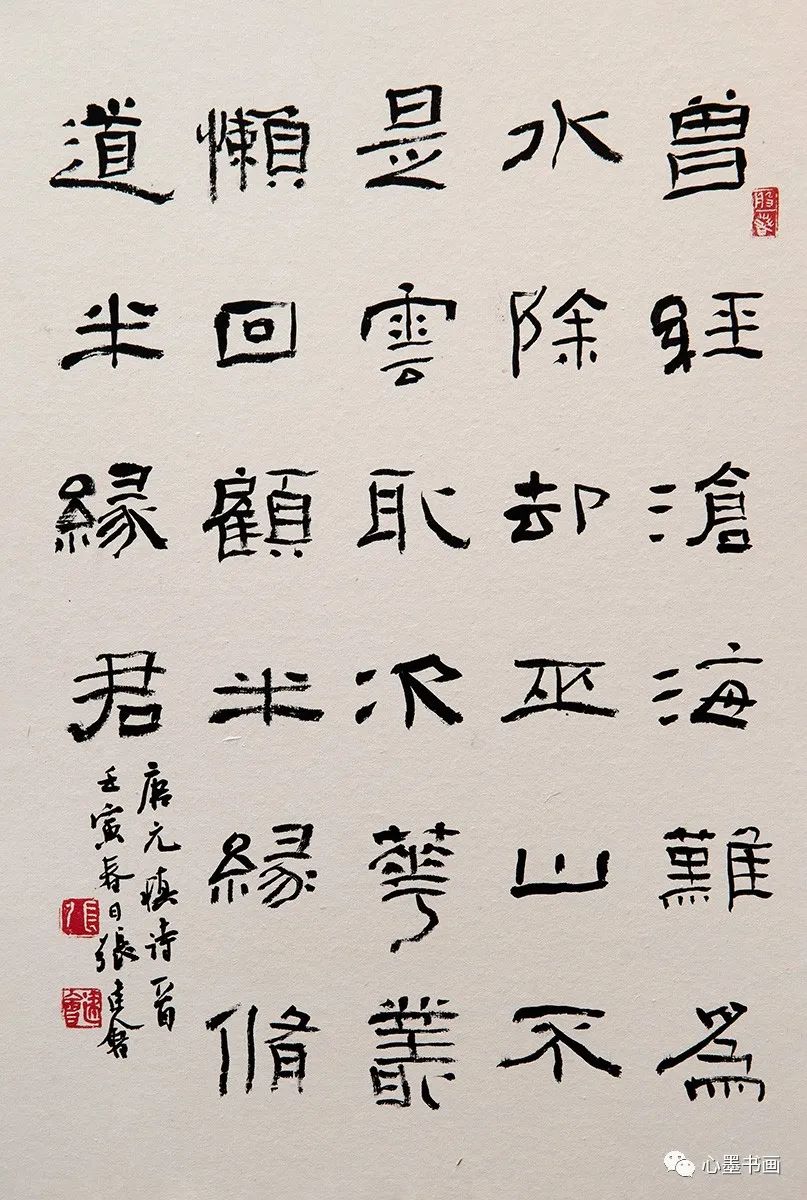 曾經滄海難爲
水除却巫山不
是雲取次華叢
懶回顧半緣脩
道半緣君
唐元稹诗一首
壬寅春日張建會
心墨书画